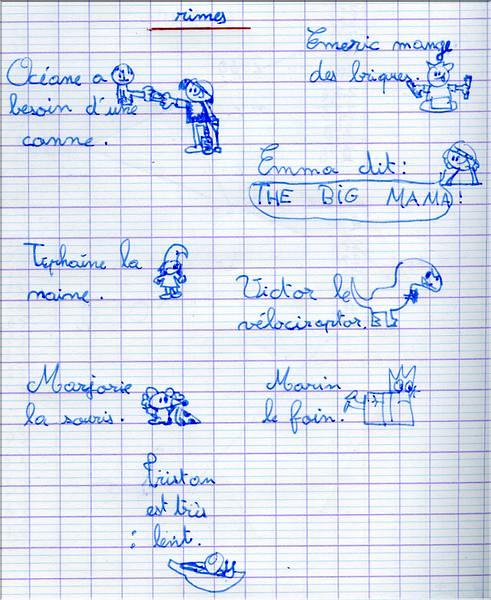 rimes
Emeric mange
des briques.
Océane a
besoin d'une
canne.
Emma dit :
THE BIG MAMA !
Tephaine la
naine.
Victor le
vélociraptor.
Marjorie
la souris.
Marin
le foin.
Tristan
est très
lent.